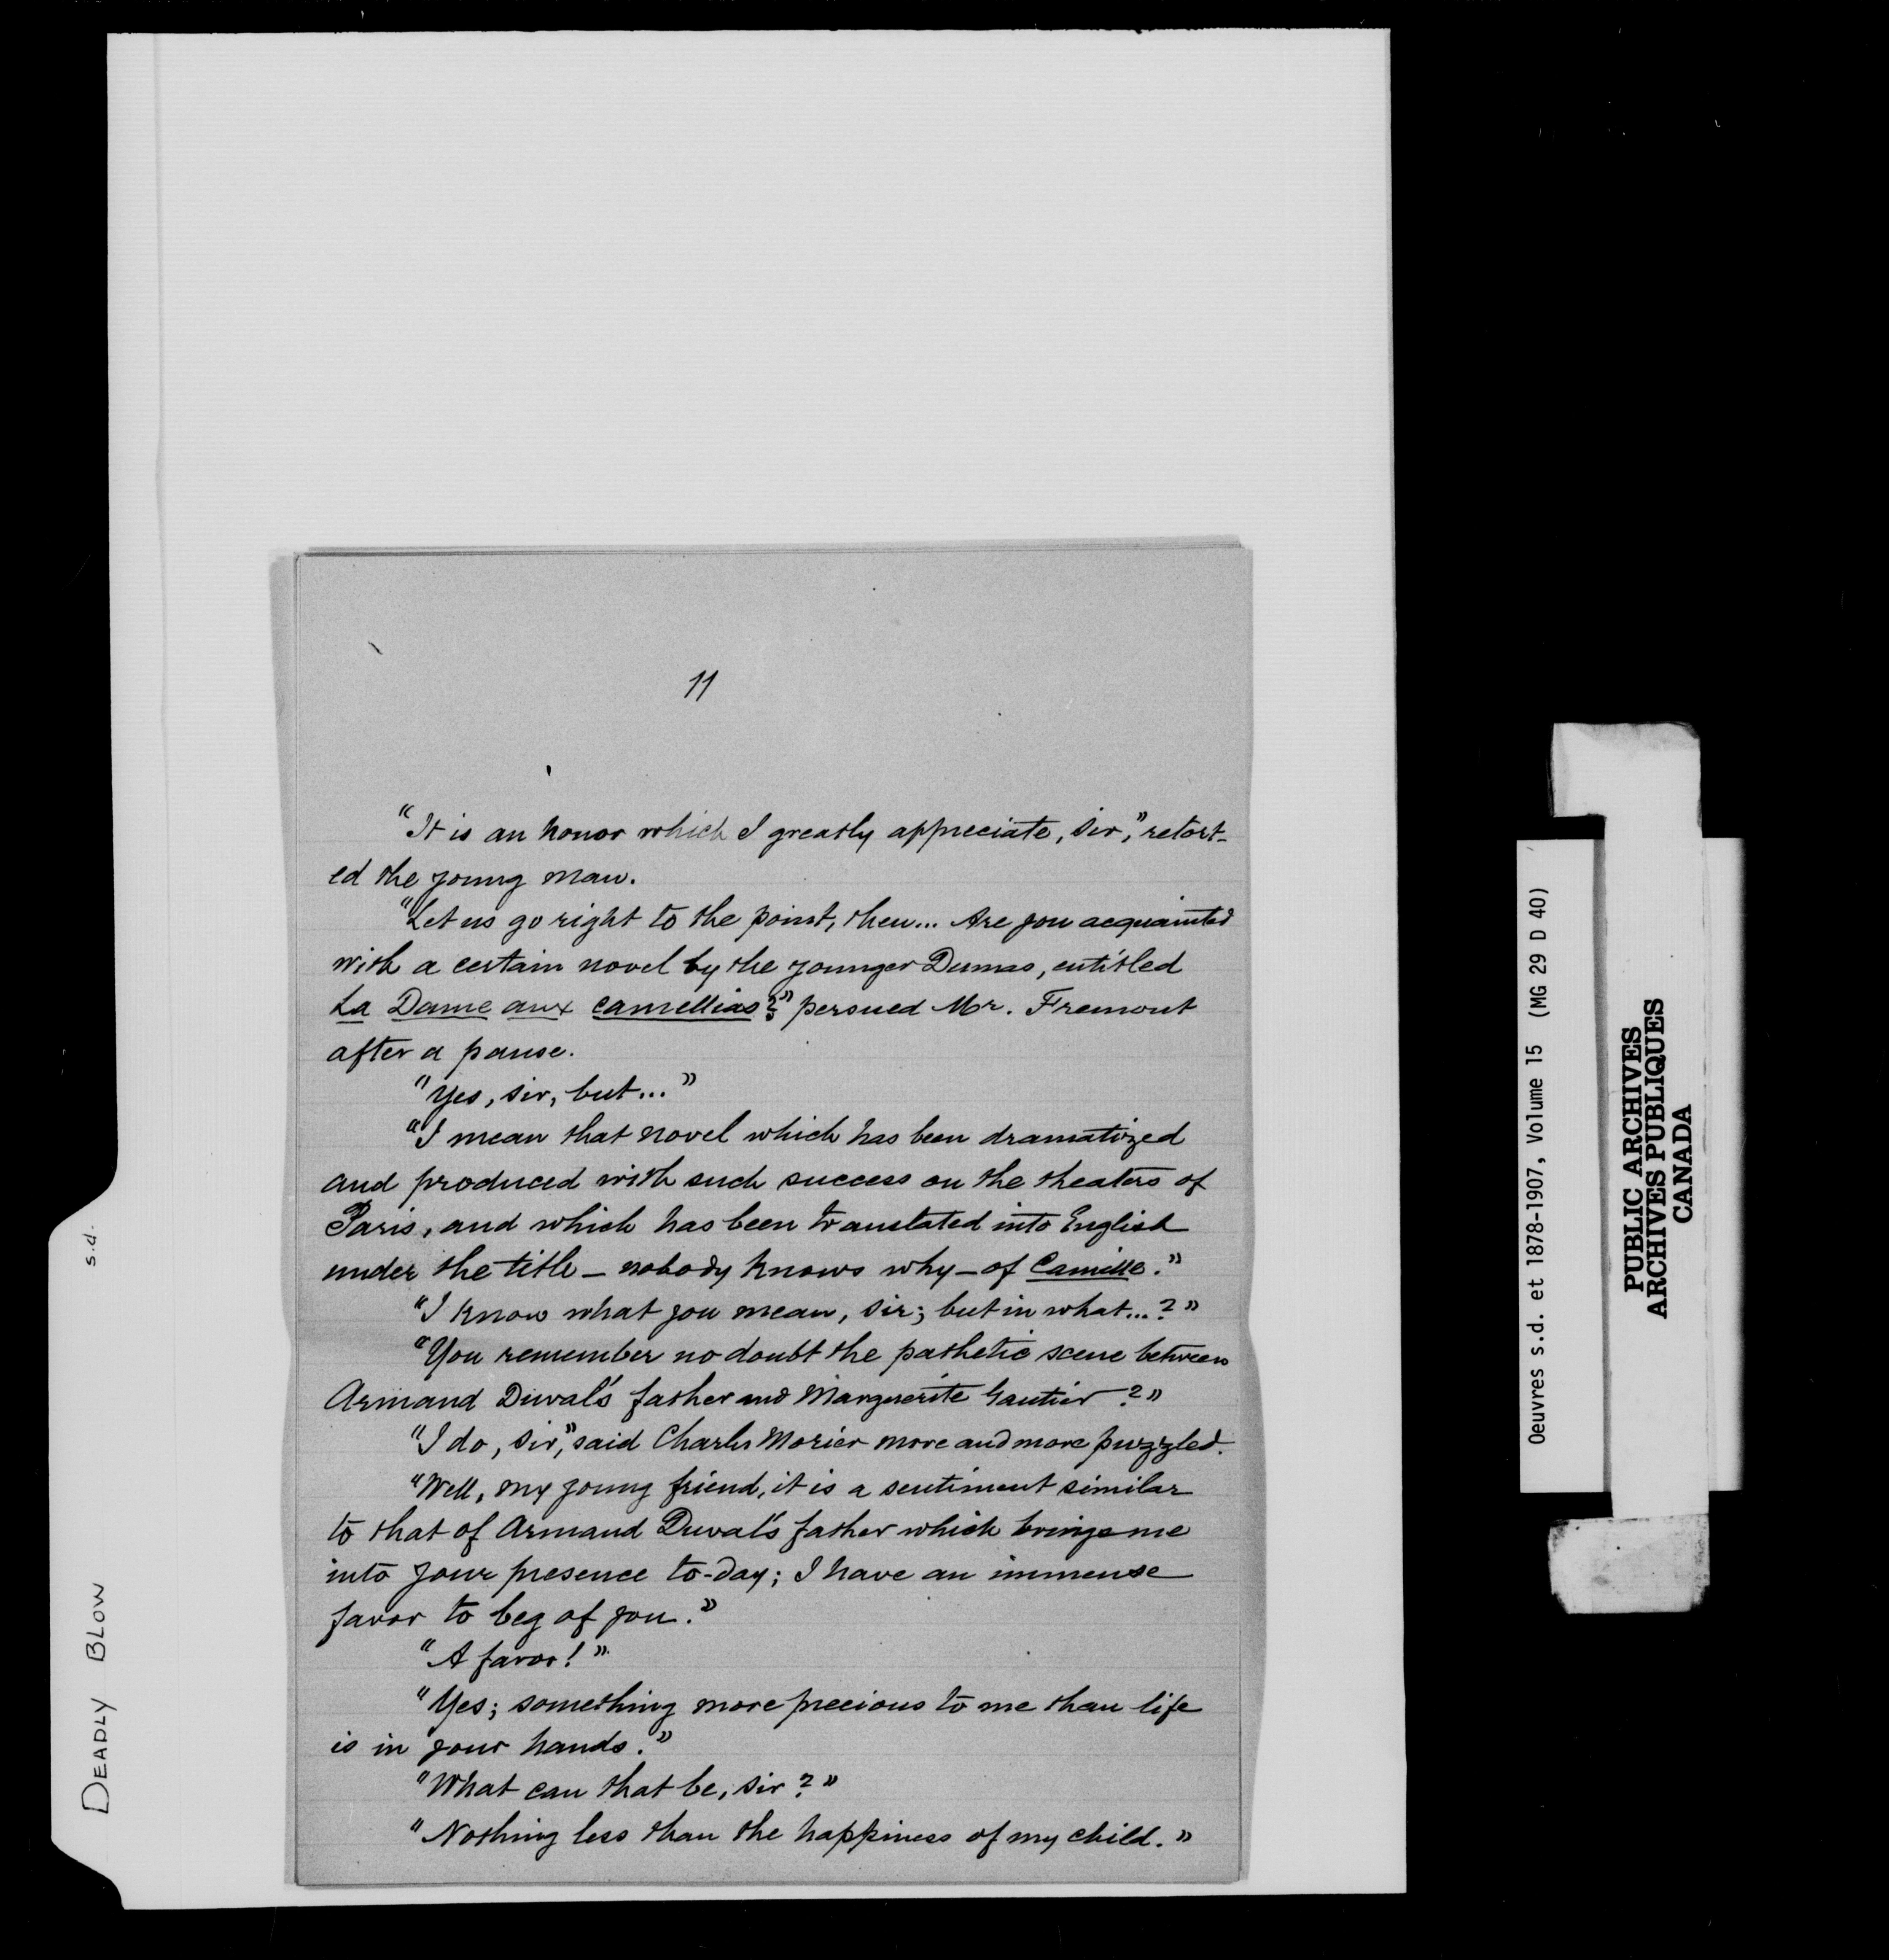 11
"It is an honor which I greatly appreciate, sir," retort-
ed the young man.
"Let us go right to the point, then... Are you acquainted
with a certain novel by the younger Dumas, entitled
La Dame aux camellias?" persued Mr. Fremont
after a pause.
"Yes, sir, but..."
"I mean that novel which has been dramatized
and produced with such success on the theaters of
Paris, and which has been translated into English
under the title – nobody knows why – of Camille."
"I know what you mean, sir; but in what...?"
"You remember no doubt the pathetic scene between
Armand Duval's father and Marguerite Gautier?"
"I do, sir," said Charles Morier more and more puzzled.
"Well, my young friend, it is a sentiment similar
to that of Armand Duval's father which brings me
into your presence to-day; I have an immense
favor to beg of you."
"A favor!"
"Yes; something more precious to me than life
is in your hands."
"What can that be, sir?"
"Nothing less than the happiness of my child."
DEADLY BLOW s.d.
Oeuvres s.d. et 1878-1907, Volume 15 (MG 29 D 40)
PUBLIC ARCHIVES
ARCHIVES PUBLIQUES
CANADA